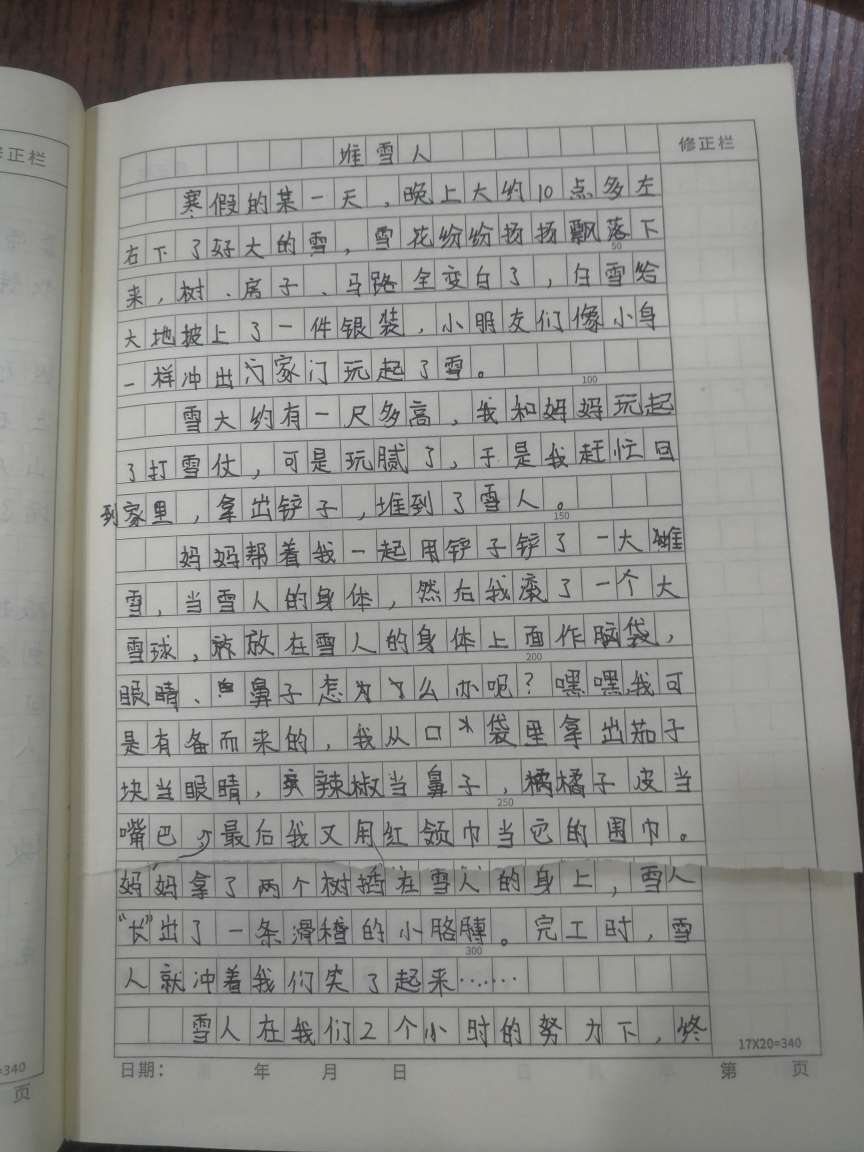 正栏
修正栏
堆雪人
寒假的某一天，晚上大约10点多左
右下了好大的雪，雪花纷纷扬扬飘落下
50
来，树、房子、马路全变白了，白雪给
大地披上了一件银装，小朋友们像小鸟
一样冲出家门玩起了雪。
100
雪大约有一尺多高，我和妈妈玩起
了打雪仗，可是玩腻了，于是我赶忙回
到家里，拿出铲子，堆到了雪人。
150
妈妈帮着我一起用铲子铲了一大堆
雪，当雪人的身体，然后我滚了一个大
雪球，放在雪人的身体上面作脑袋，
200
眼睛、鼻子怎么办呢？嘿嘿，我可
是有备而来的，我从口袋里拿出茄子
块当眼睛，辣椒当鼻子，橘子皮当
250
嘴巴，最后我又用红领巾当它的围巾。
妈妈拿了两个树插在雪人的身上，雪人
“长”出了一条滑稽的小胳膊。完工时，雪
300
人就冲着我们笑了起来……
雪人在我们2个小时的努力下，终
17X20=340
=340
日期： 年 月 日 第 页
页